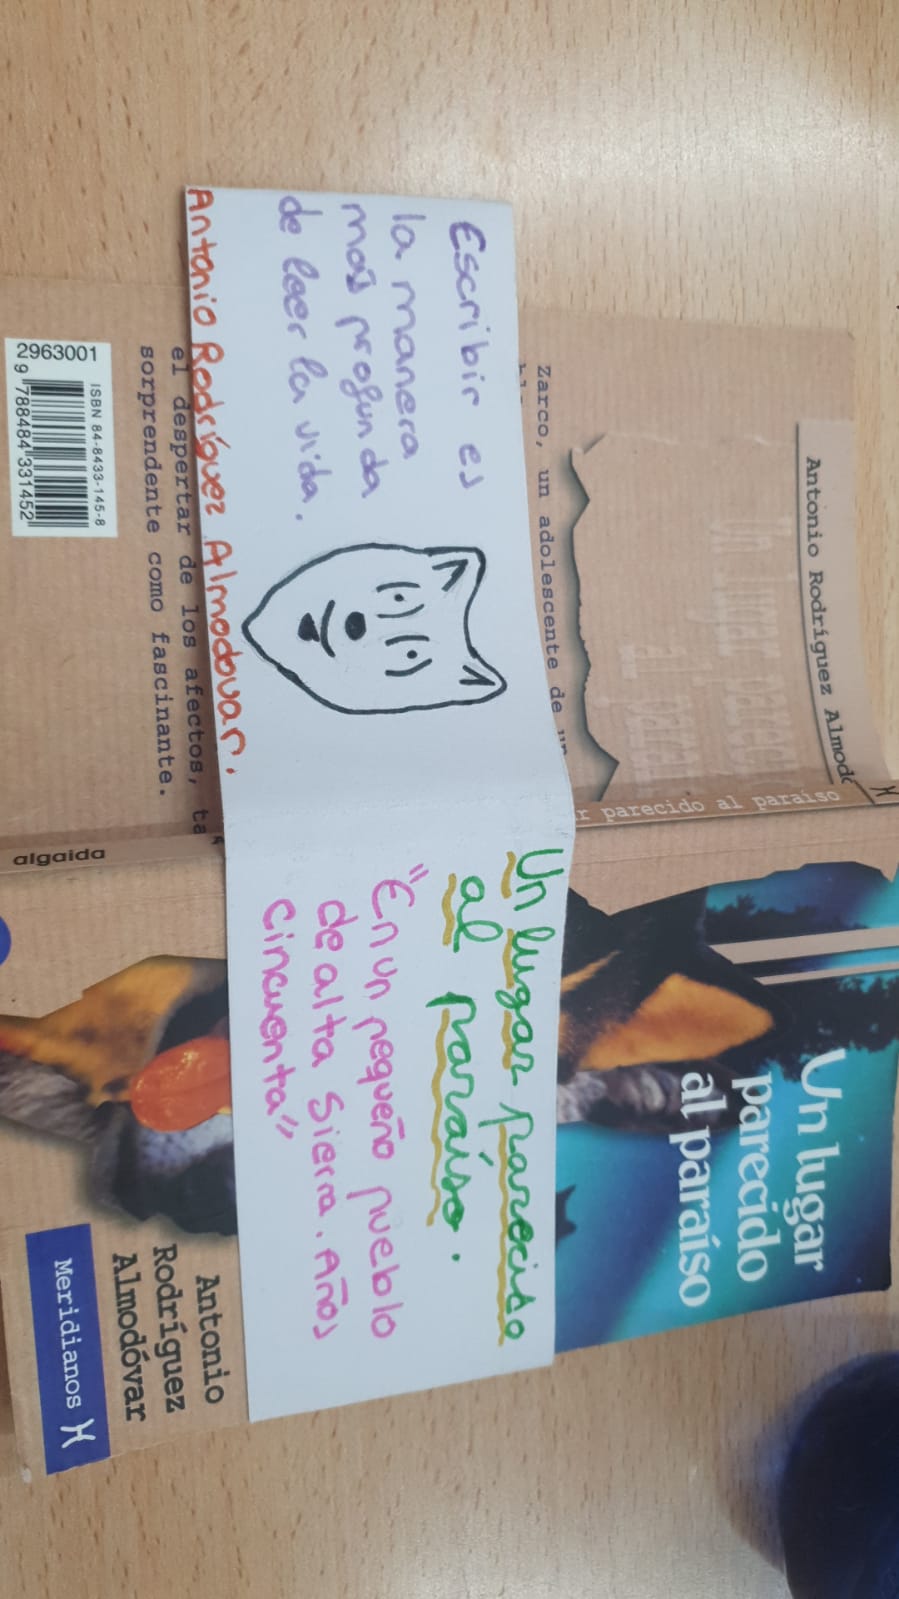 Antonio Rodríguez Almodó
Un lugar parecido
al paraí
Zarco, un adolescente de un
Escribir es
la manera
más profunda
de leer la vida.
Antonio Rodríguez Almodovar.
el despertar de los afectos, ta
sorprendente como fascinante.
ISBN 84-8433-145-8
2963001
9 788484 331452
r parecido al paraíso
algaida
Un lugar parecido
al paraíso.
"En un pequeño pueblo
de alta Sierra. Años
cincuenta"
Un lugar
parecido
al paraíso
Antonio
Rodríguez
Almodóvar
Meridianos